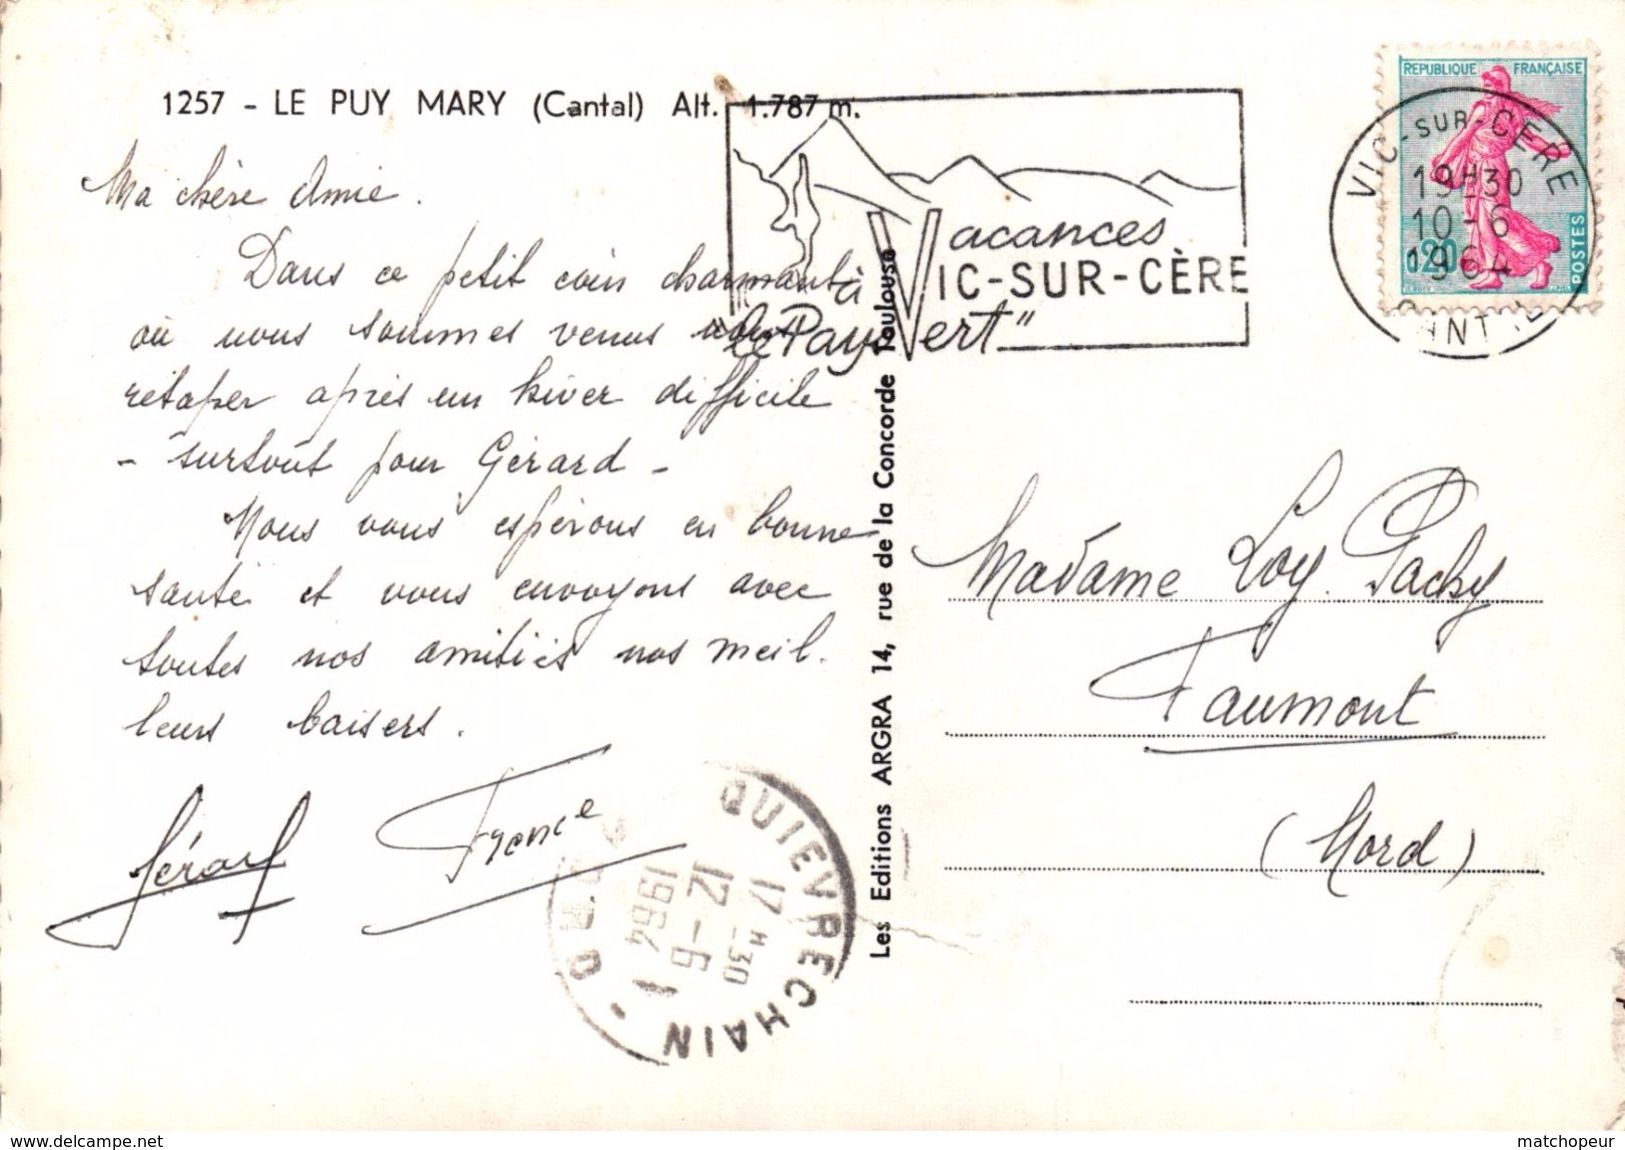 1257 - LE PUY MARY (Cantal) Alt. 1.787 m.
Ma chère Amie.
Dans ce petit coin charmant
où nous sommes venus nous
retaper après un hiver difficile
- surtout pour Gérard -
Nous vous espérons en bonne
santé et vous envoyons avec
toutes nos amitiés nos meil.
leurs baisers.
Gérard France
Vacances
à VIC-SUR-CÈRE
"le Pays Vert"
REPUBLIQUE FRANÇAISE
0,20
POSTES
VIC-SUR-CERE
19H30
10-6
1964
CANTAL
Les Editions ARGRA 14, rue de la Concorde Toulouse
Madame Loy. Pachy
Faumont
(Nord)
QUIEVRECHAIN - NORD
17H30
12-6
1964
www.delcampe.net
matchopeur